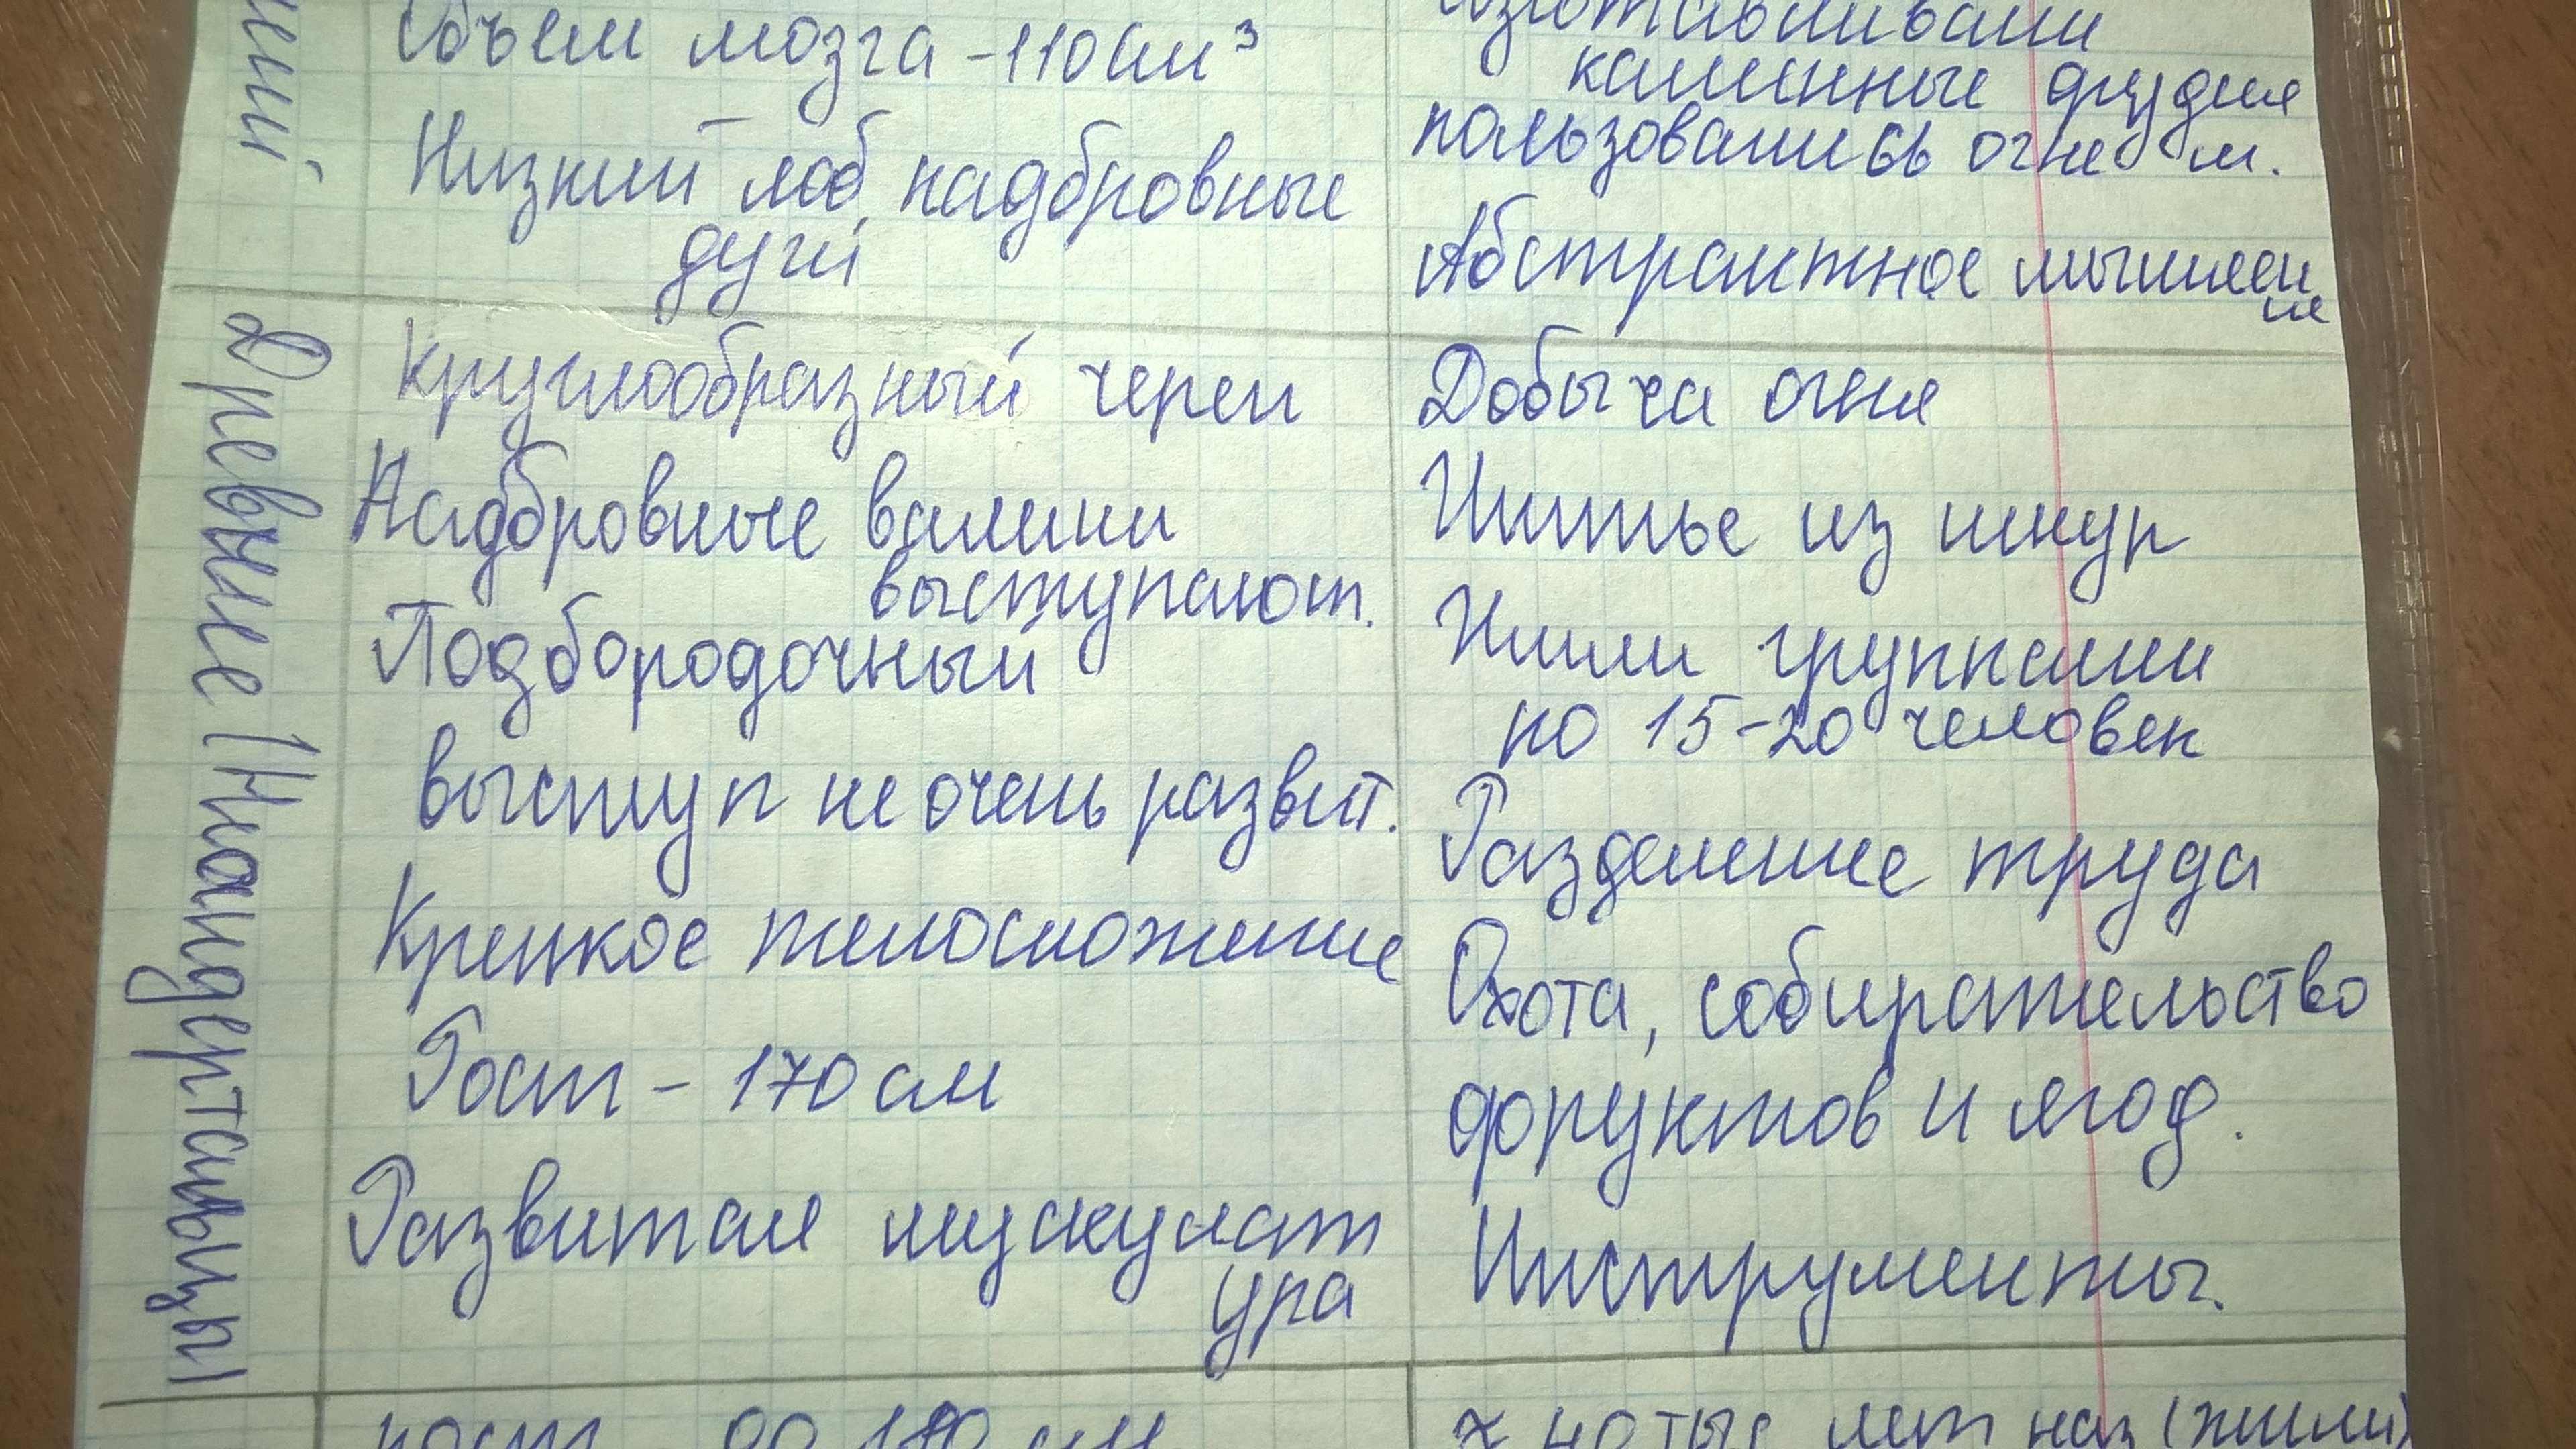 Объем мозга - 110 см³
Низкий лоб, надбровные
дуги
изготавливали
каменные орудия
пользовались огнем.
Абстрактное мышлен
ие
Древние / Неандертальцы
Круглообразный череп
Надбровные валики
выступают.
Подбородочный
выступ не очень развит.
Крепкое телосложение
Рост - 170 см
Развитая мускулат
ура
Добыча огня
Шитье из шкур
Жили группами
по 15-20 человек
Разделение труда
Охота, собирательство
фруктов и ягод.
Инструменты.
рост до 180 см
40 тыс лет наз (жили)